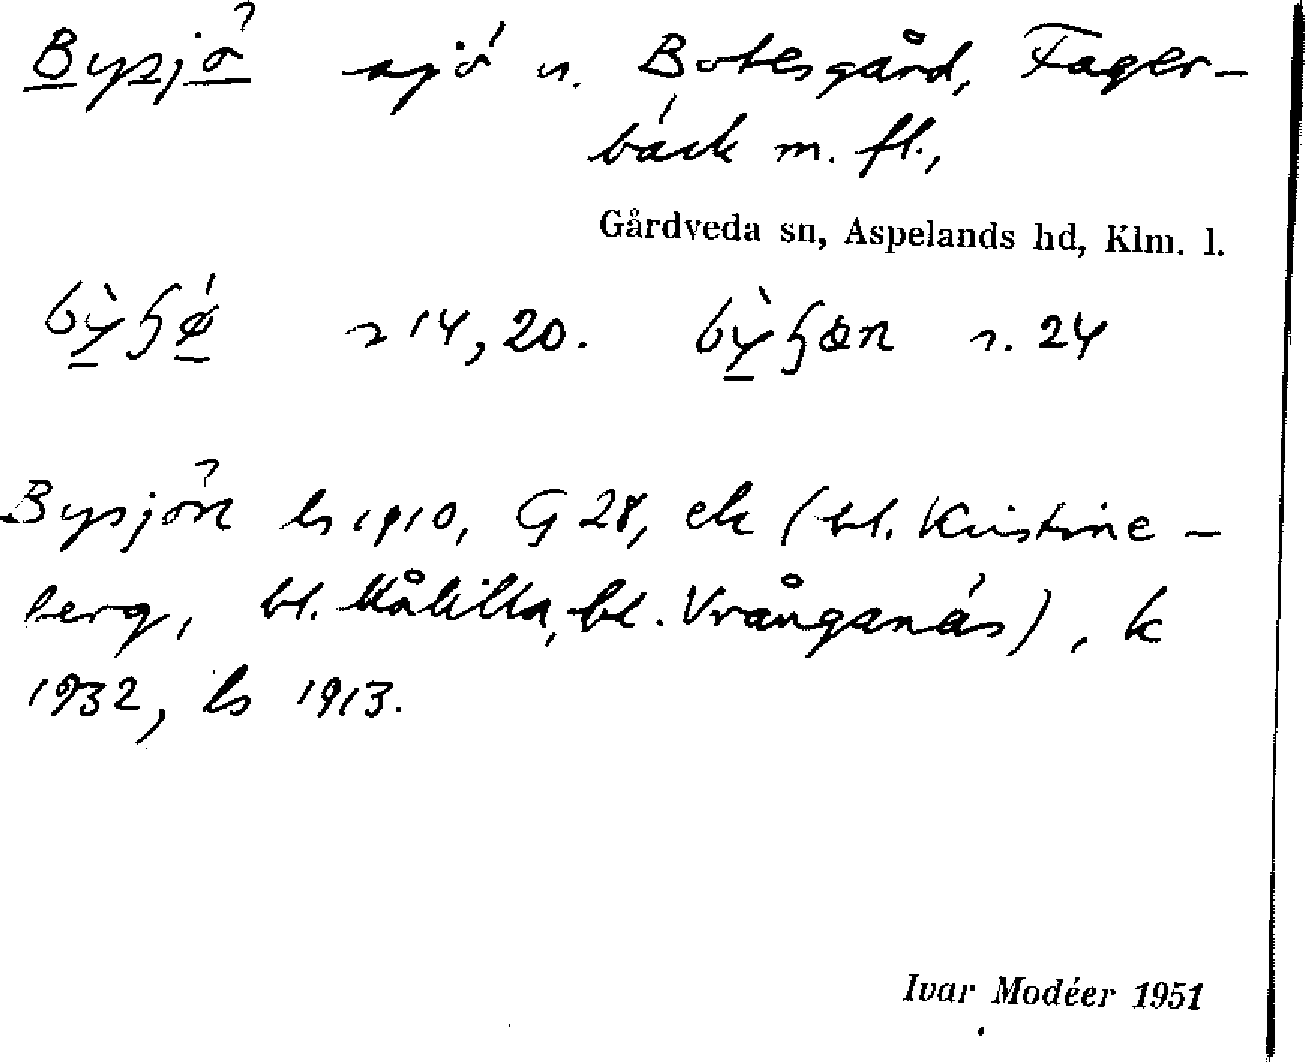 Bysjö sjö n. Botesgård, Fager-
bäck m. fl.,
Gårdveda sn, Aspelands hd, Klm. l.
s. 14, 20. s. 24
Bysjön ls 1910, G 28, ek (bl. Kristine-
berg, bl. Målilla, bl. Vrånganäs), k
1932, ls 1913.
Ivar Modéer 1951